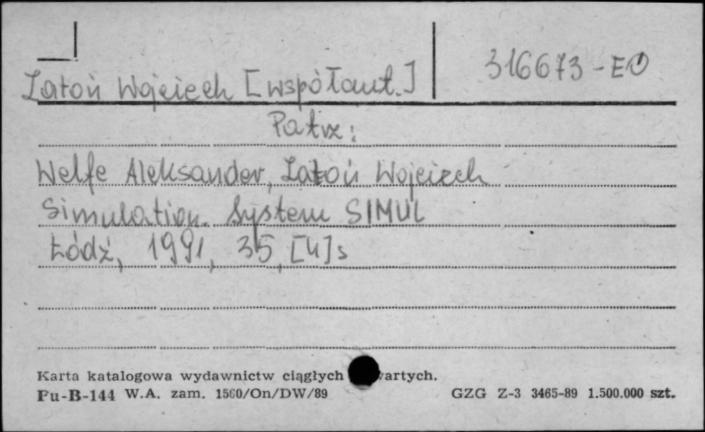 316673-EO
Latoń Wojciech [współaut.]
Patrz:
Welfe Aleksander, Latoń Wojciech
Simulation System SIMUL
Łódź, 1991, 35, [4]s
Karta katalogowa wydawnictw ciągłych
Pu-B-144 W.A. zam. 1560/On/DW/89 GZG Z-3 3465-89 1.500.000 szt.